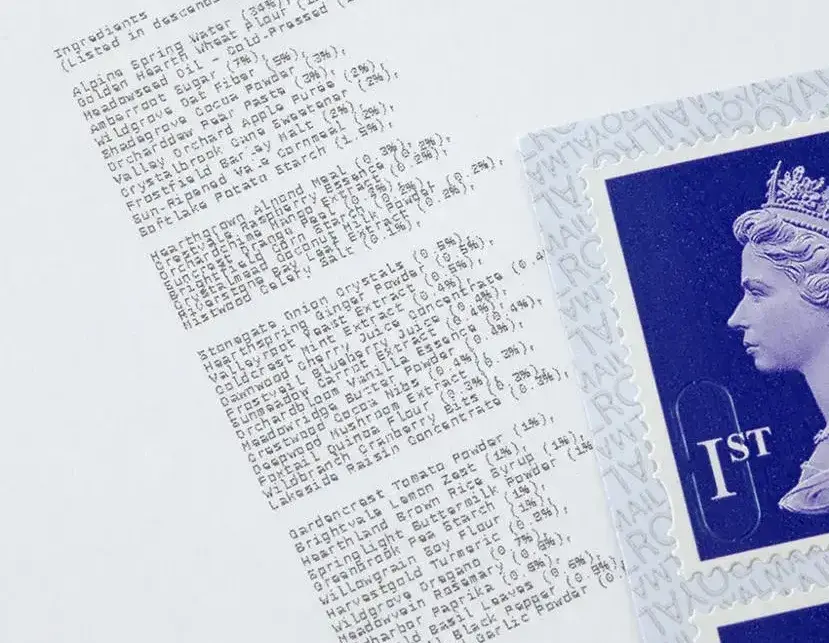 Ingredients
(Listed in
Alpine Spring Water (34%),
Golden Hearth Wheat Flour
Meadowseed Oil - Cold-Pressed
Amberroot Sugar (7%),
Wildgrove Oat Fiber (5%),
Shadegrove Cocoa Powder (3%),
Orcharddew Pear Paste (3%),
Valley Orchard Apple Puree (2%),
Crystalbrook Cane Sweetener (2%),
Frostfield Barley Malt (2%),
Sun-Ripened Vale Cornmeal (2%),
Softlake Potato Starch (1.5%),
Hearthgrown Almond Meal (0.3%),
Crestvale Raspberry Essence (0.2%),
Orchardchime Mango Extract (0.2%),
Orange
Corn Starch
Coconut Milk Powder (0.2%),
Riverstone Bay Leaf Extract (0.2%),
Mistwood Celery Salt (0.1%),
Stonegate Onion Crystals (0.5%),
Hearthspring Ginger Powder (0.5%),
Valleyroot Yeast Extract (0.5%),
Goldcrest Mint Extract (0.4%),
Dawnwood Cherry Juice Concentrate
Frostvail Blueberry Juice (0.4%),
Sunmeadow Carrot Extract (0.4%),
Orchardbloom Vanilla Essence (0.4%),
Meadowridge Butter Powder (0.4%),
Crestwood Cocoa Nibs (0.4%),
Deepwood Mushroom Extract (0.3%),
Foxtail Quinoa Flour (0.3%),
Wildbranch Cranberry Bits (0.3%),
Lakeside Raisin Concentrate (0.3%),
Gardencrest Tomato Powder (1%),
Brightvale Lemon Zest (1%),
Hearthland Brown Rice Syrup (1%),
Springlight Buttermilk Powder (1%
Greenbrook Pea Starch (1%),
Willowgrain Soy Flour (1%),
Harvestgold Turmeric (0.8%),
Wildgrove Oregano (0.7%),
Meadowvein Rosemary (0.6%),
Paprika
Basil Leaves
Black Pepper
Garlic Powder
1ST
ROYAL MAIL